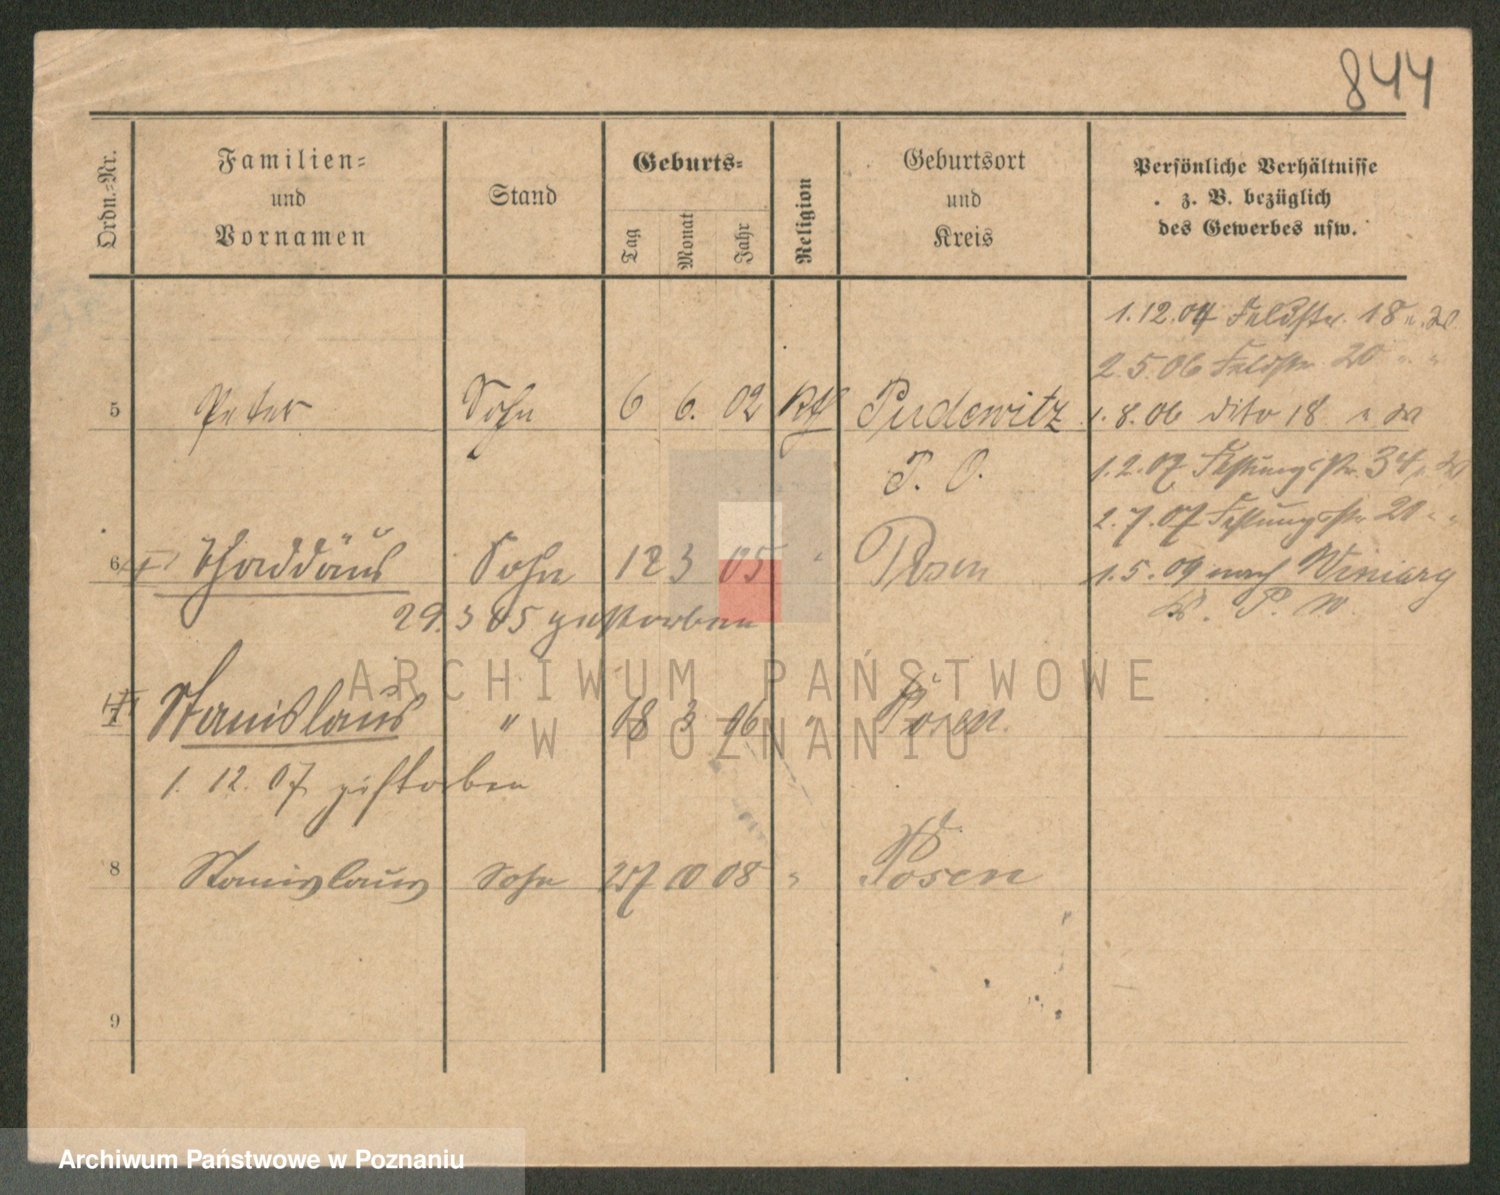 844
Ordn.-Nr.
Familien-
und
Vornamen
Stand
Geburts-
Tag
Monat
Jahr
Religion
Geburtsort
und
Kreis
Persönliche Verhältnisse
z. B. bezüglich
des Gewerbes usw.
1.12.04 Feldstr. 18
2.5.06 Feldstr. 20 " "
5 Peter Sohn 6 6. 02 Kth Pudewitz 1.8.06 dito 18
P. O. 1.2.07 Festungsstr. 34
2.7.07 Festungsstr. 20 " "
6 Thaddäus Sohn 12 3 05 " Posen 1.5.09 nach Winiary
29.3 05 gestorben Kr. P. W.
7 Stanislaus " 18 3 06 " Posen.
1. 12. 07 gestorben
8 Stanislaus Sohn 10 08 " Posen
9
ARCHIWUM PAŃSTWOWE
W POZNANIU
Archiwum Państwowe w Poznaniu